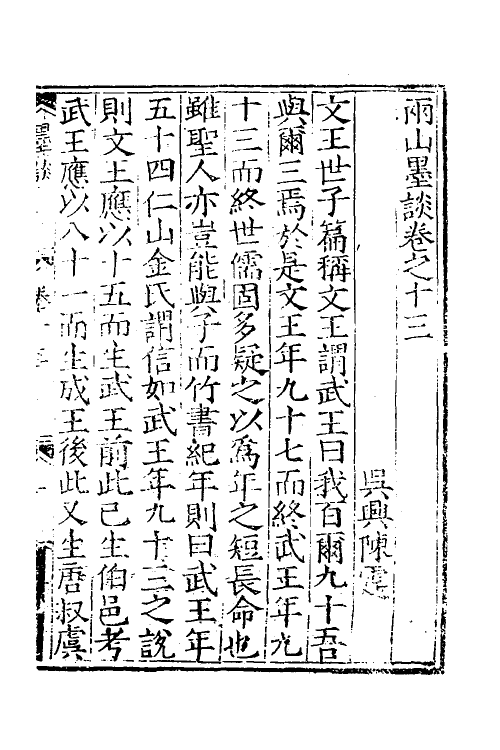 兩山墨談卷之十三
吳興陳霆
文王世子篇稱文王謂武王曰我百爾九十吾
與爾三焉於是文王年九十七而終武王年九
十三而終世儒固多疑之以爲年之短長命也
雖聖人亦豈能與子而竹書紀年則曰武王年
五十四仁山金氏謂信如武王年九十三之說
則文王應以十五而生武王前此已生伯邑考
武王應以八十一而生成王後此又生唐叔虞
墨談 卷十三